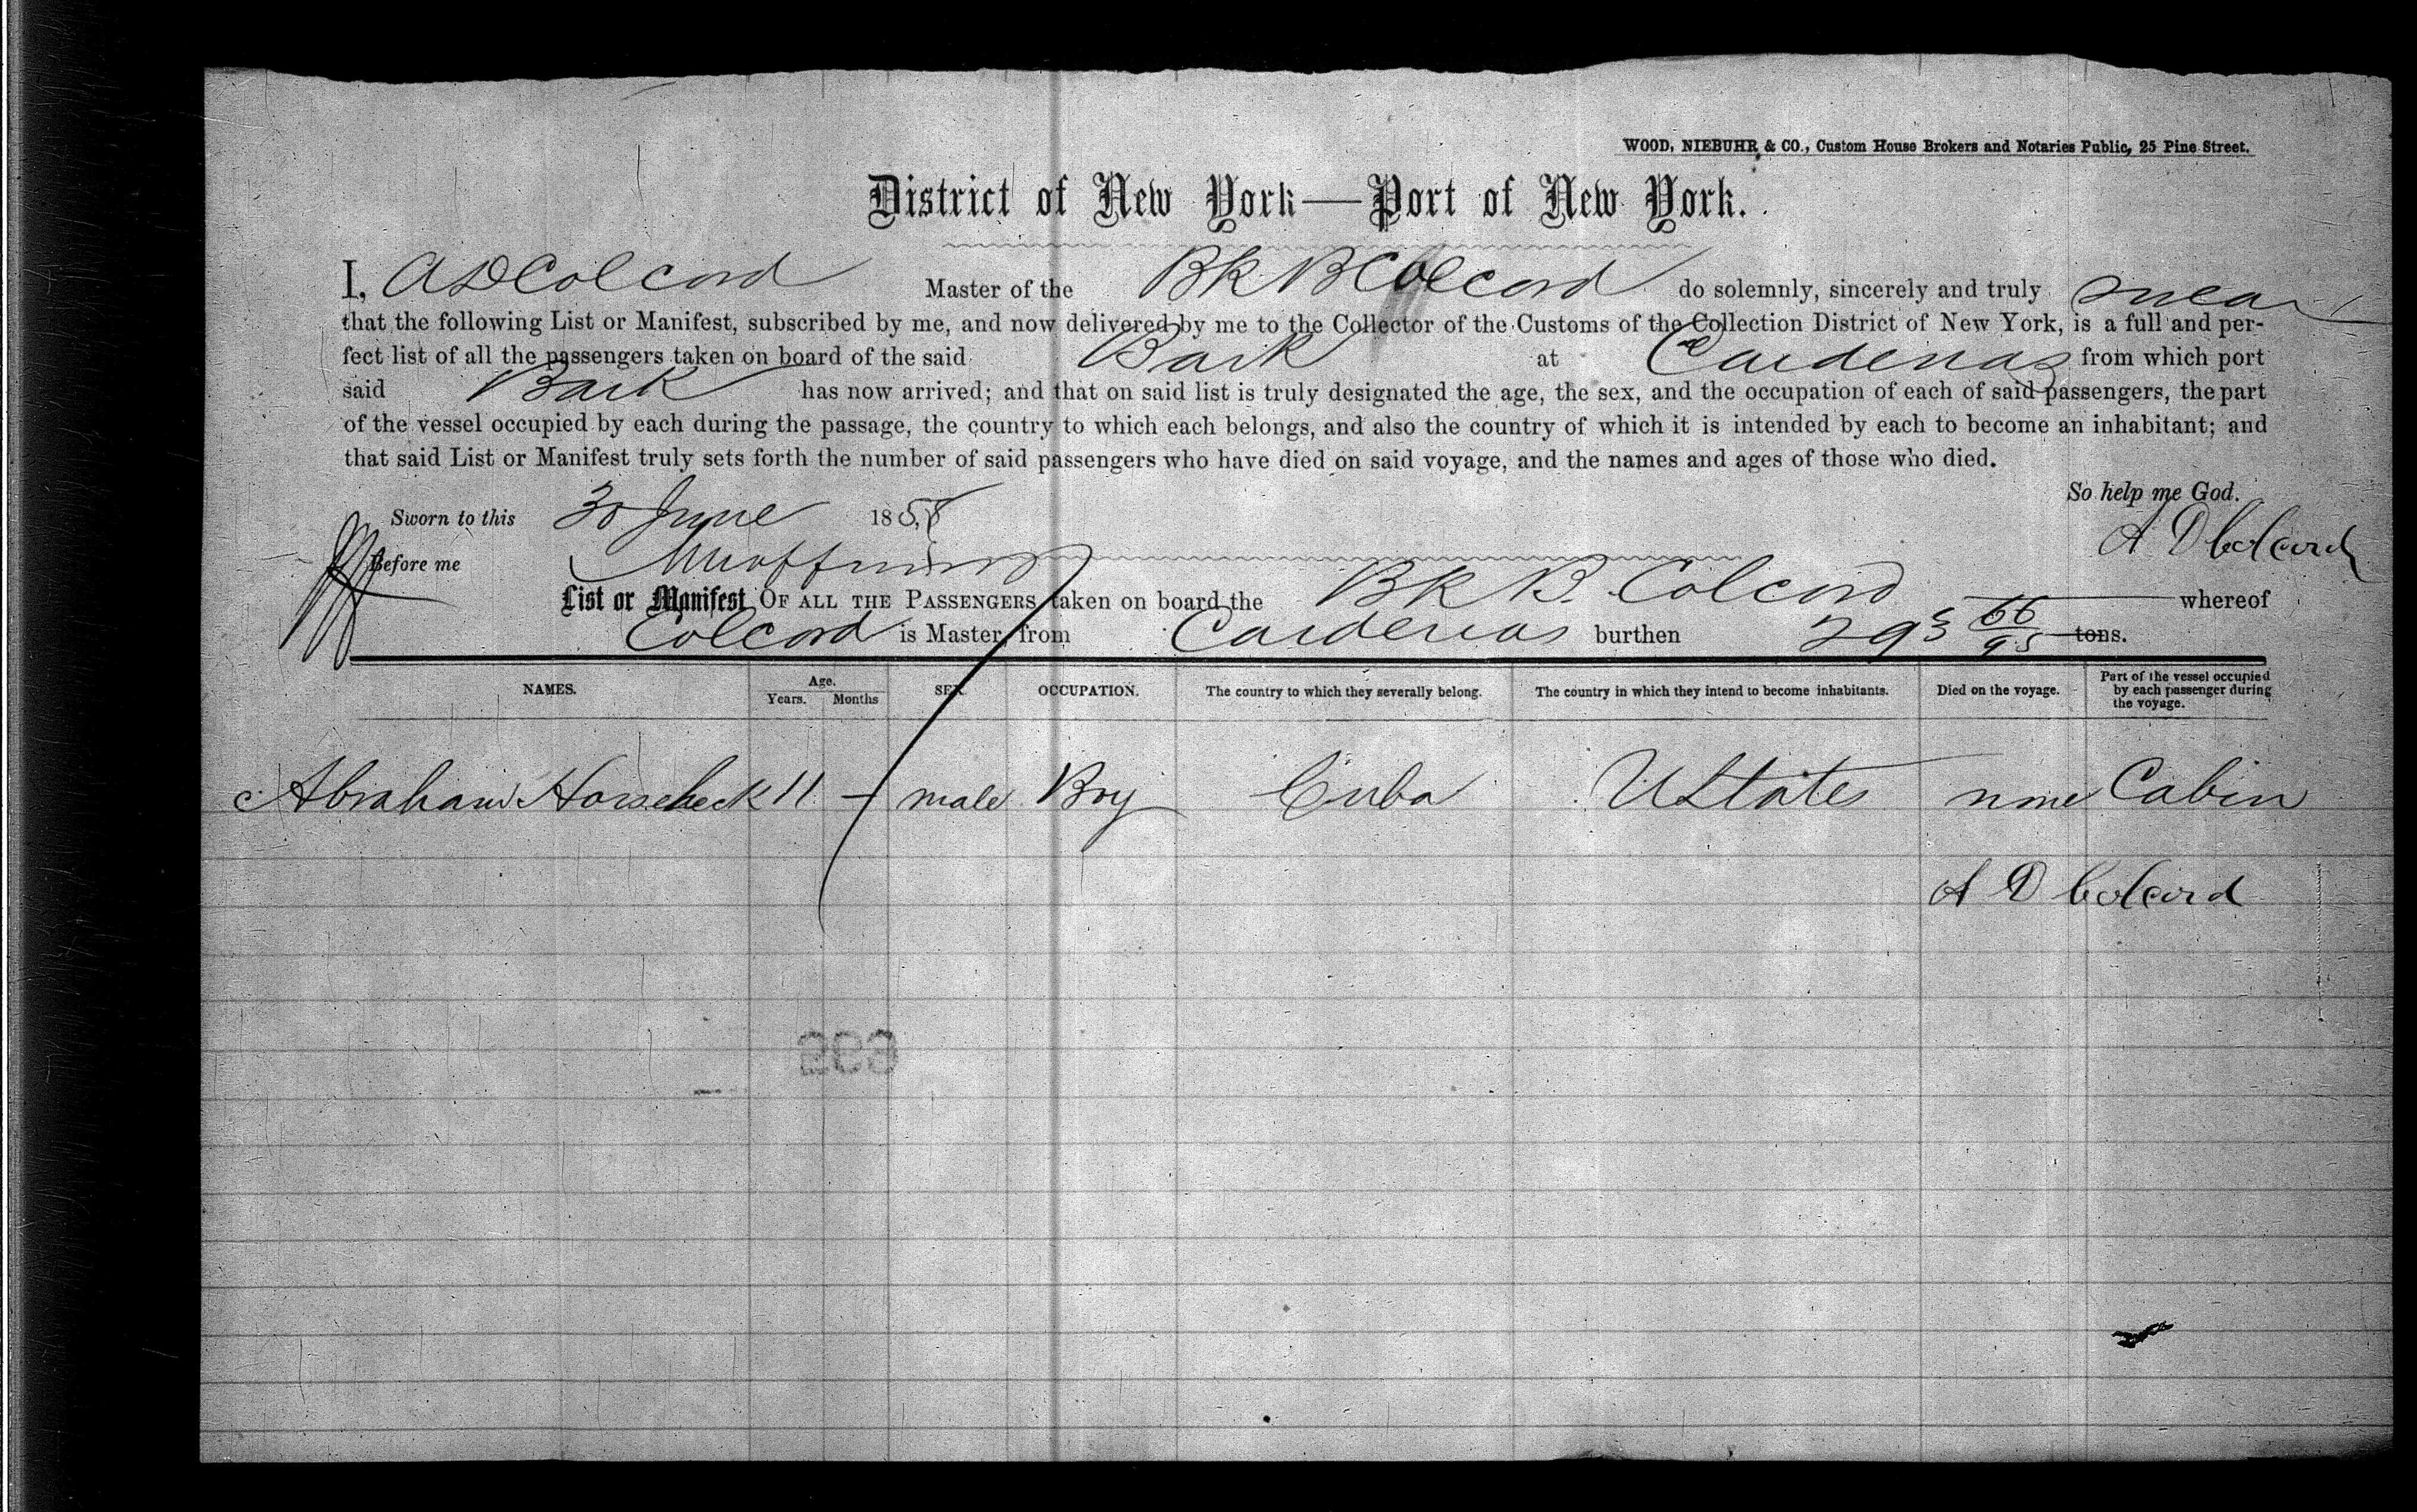 WOOD, NIEBUHR & CO., Custom House Brokers and Notaries Public, 25 Pine Street.
District of New York—Port of New York.
I, A D Colcord Master of the Bk B Colcord do solemnly, sincerely and truly swear
that the following List or Manifest, subscribed by me, and now delivered by me to the Collector of the Customs of the Collection District of New York, is a full and per-
fect list of all the passengers taken on board of the said Bark at Cardenas from which port
said Bark has now arrived; and that on said list is truly designated the age, the sex, and the occupation of each of said passengers, the part
of the vessel occupied by each during the passage, the country to which each belongs, and also the country of which it is intended by each to become an inhabitant; and
that said List or Manifest truly sets forth the number of said passengers who have died on said voyage, and the names and ages of those who died.
So help me God.
Sworn to this 30 June 1858
A D Colcord
Before me
List or Manifest OF ALL THE PASSENGERS taken on board the Bk B. Colcord whereof
Colcord is Master, from Cardenas burthen 293 66/95 tons.
NAMES. Age. Years. Months SEX. OCCUPATION. The country to which they severally belong. The country in which they intend to become inhabitants. Died on the voyage. Part of the vessel occupied by each passenger during the voyage.
Abraham 11 – male Boy Cuba UStates none Cabin
A D Colcord